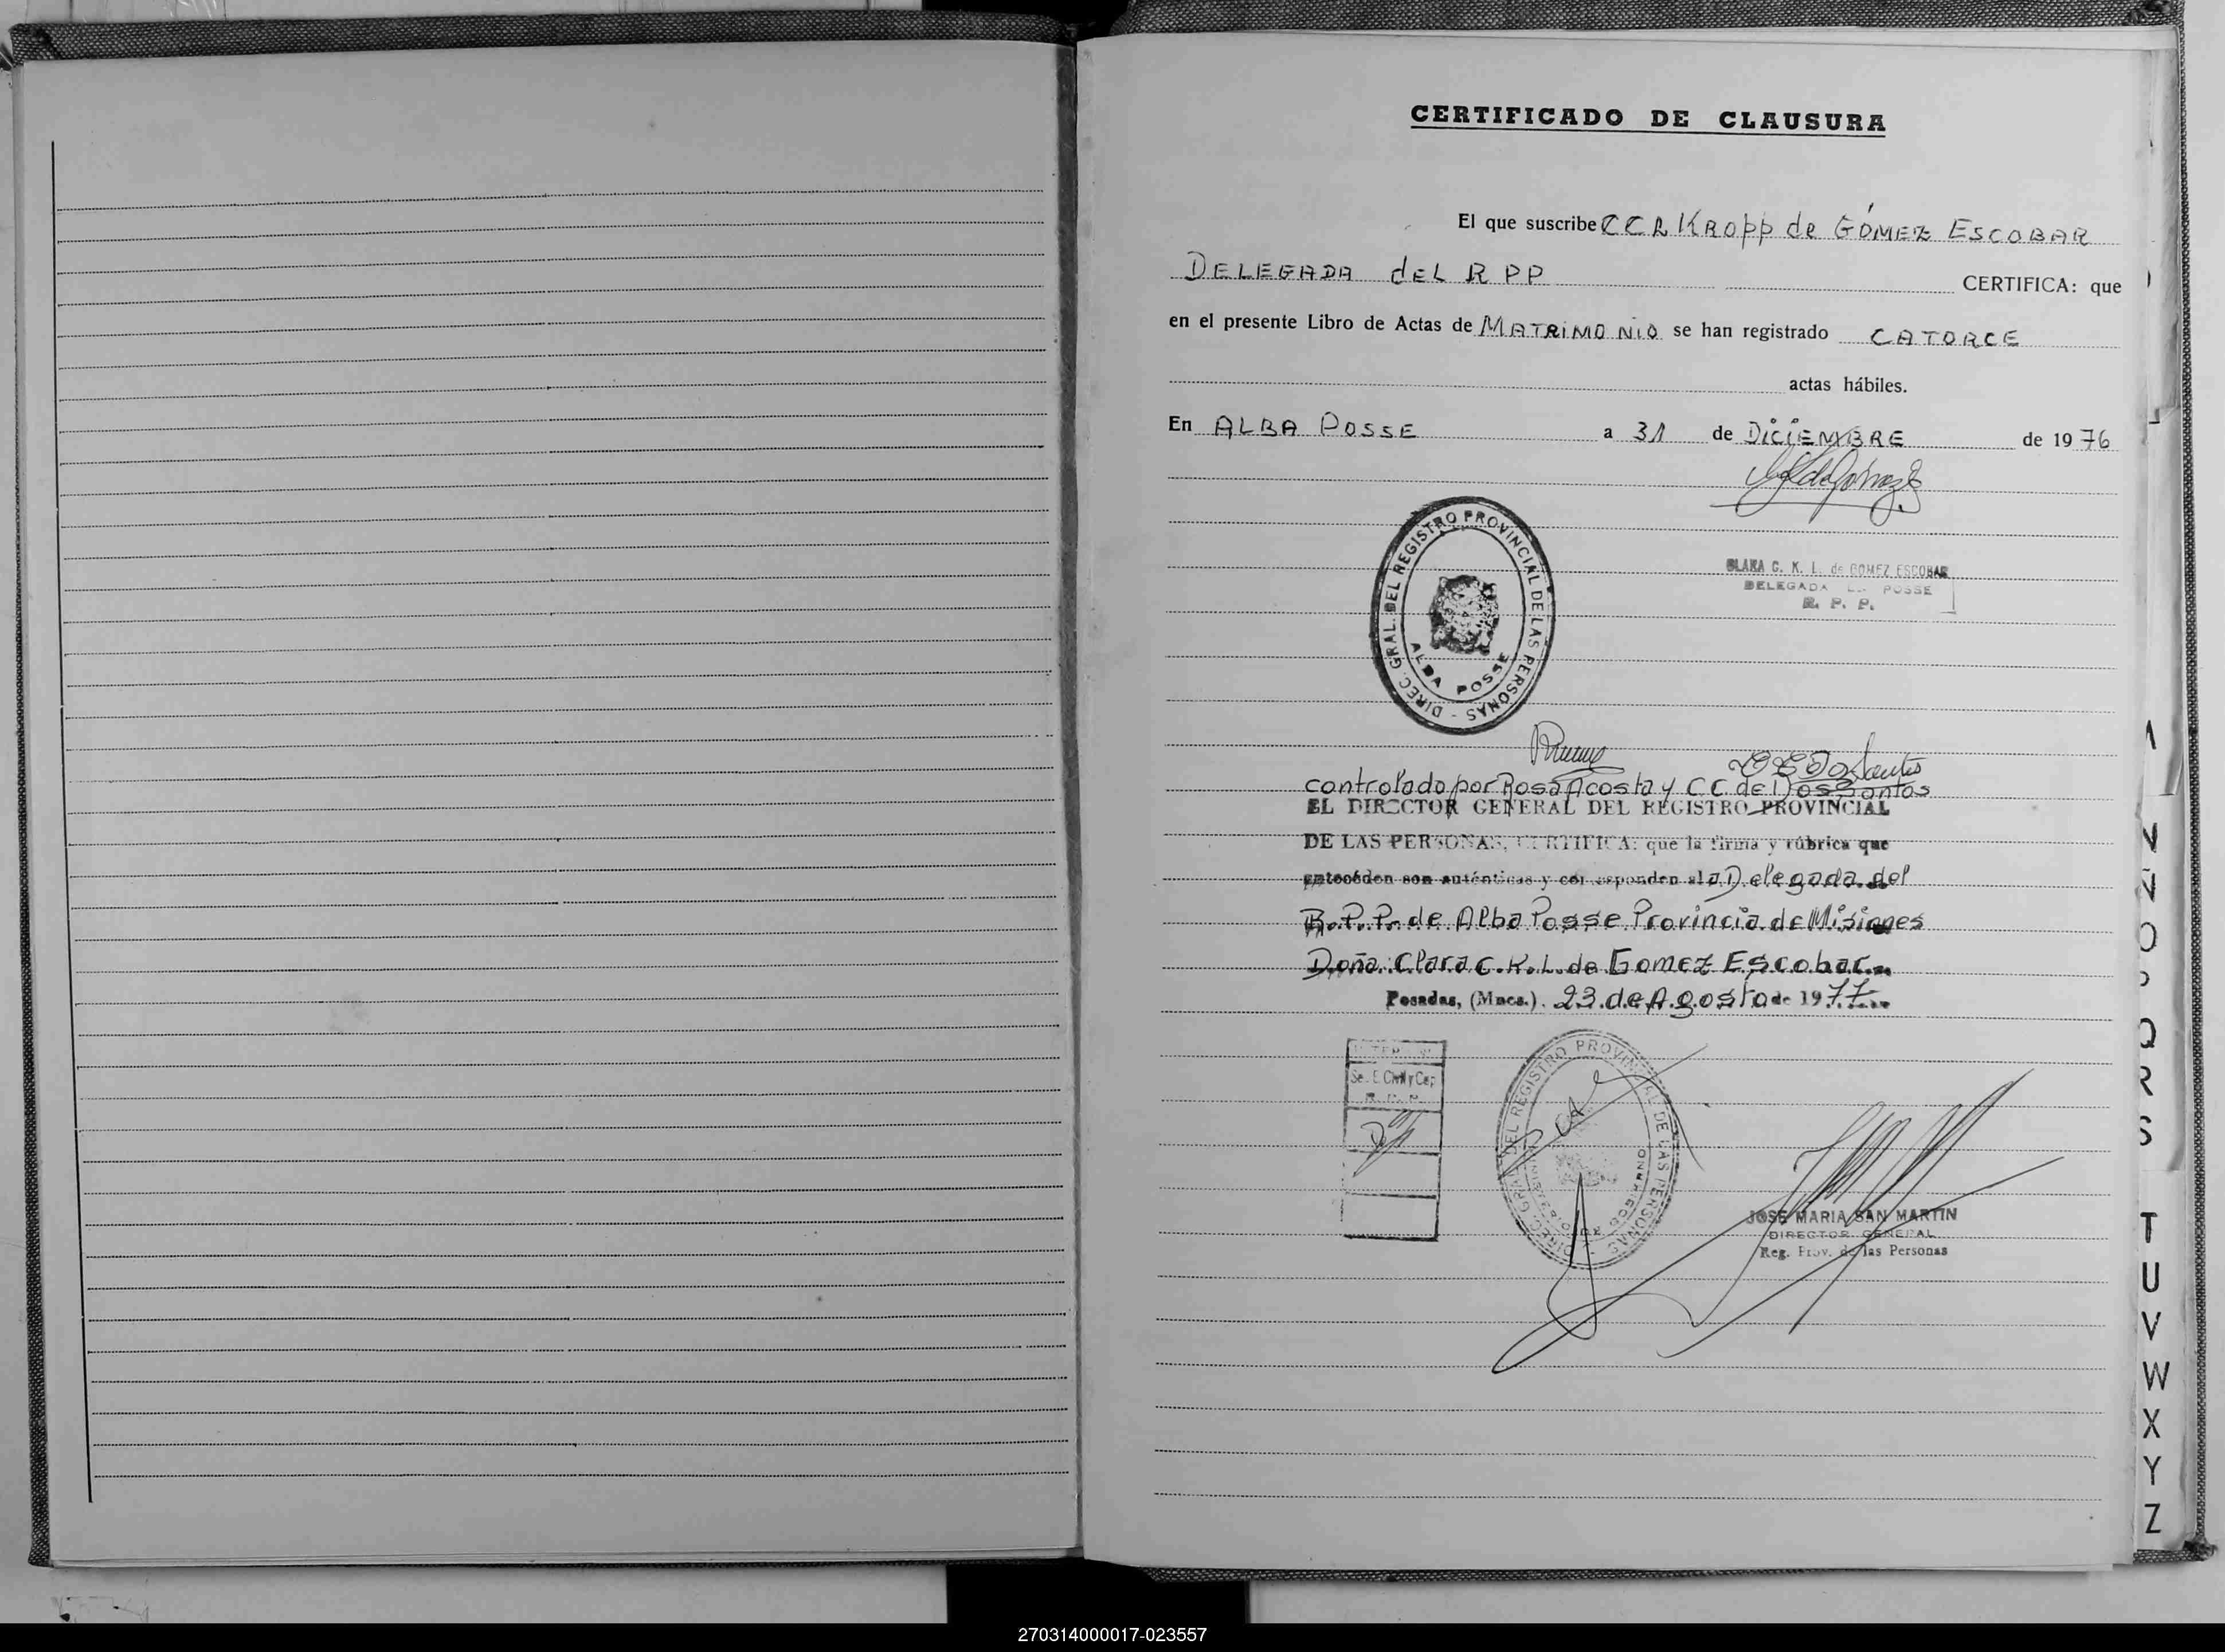 CERTIFICADO DE CLAUSURA
El que suscribe CCL Kropp de GÓMEZ ESCOBAR
DELEGADA dEL R PP CERTIFICA: que
en el presente Libro de Actas de MATRIMONIO se han registrado CATORCE
actas hábiles.
En ALBA POSSE a 31 de DICIEMBRE de 1976
DIREC. GRAL. DEL REGISTRO PROVINCIAL DE LAS PERSONAS -
ALBA POSSE
CLARA C. K. L. de GOMEZ ESCOBAR
DELEGADA POSSE
R. P. P.
controlado por Rosa Acosta y C.C. de Dos Santos
EL DIRECTOR GENERAL DEL REGISTRO PROVINCIAL
DE LAS PERSONAS, CERTIFICA: que la firma y rúbrica que
anteceden son auténticas y corresponden al a Delegada del
R.P.P. de Alba Posse Provincia de Misiones
Doña: Clara C.K.L. de Gomez Escobar
Posadas, (Mnes.). 23 de Agosto de 1977
R. P. P.
DIREC. GRAL. DEL REGISTRO PROVINCIAL DE LAS PERSONAS
JOSE MARIA SAN MARTIN
DIRECTOR GENERAL
Reg. Prov. de las Personas
N
Ñ
O
P
Q
R
S
T
U
V
W
X
Y
Z
270314000017-023557